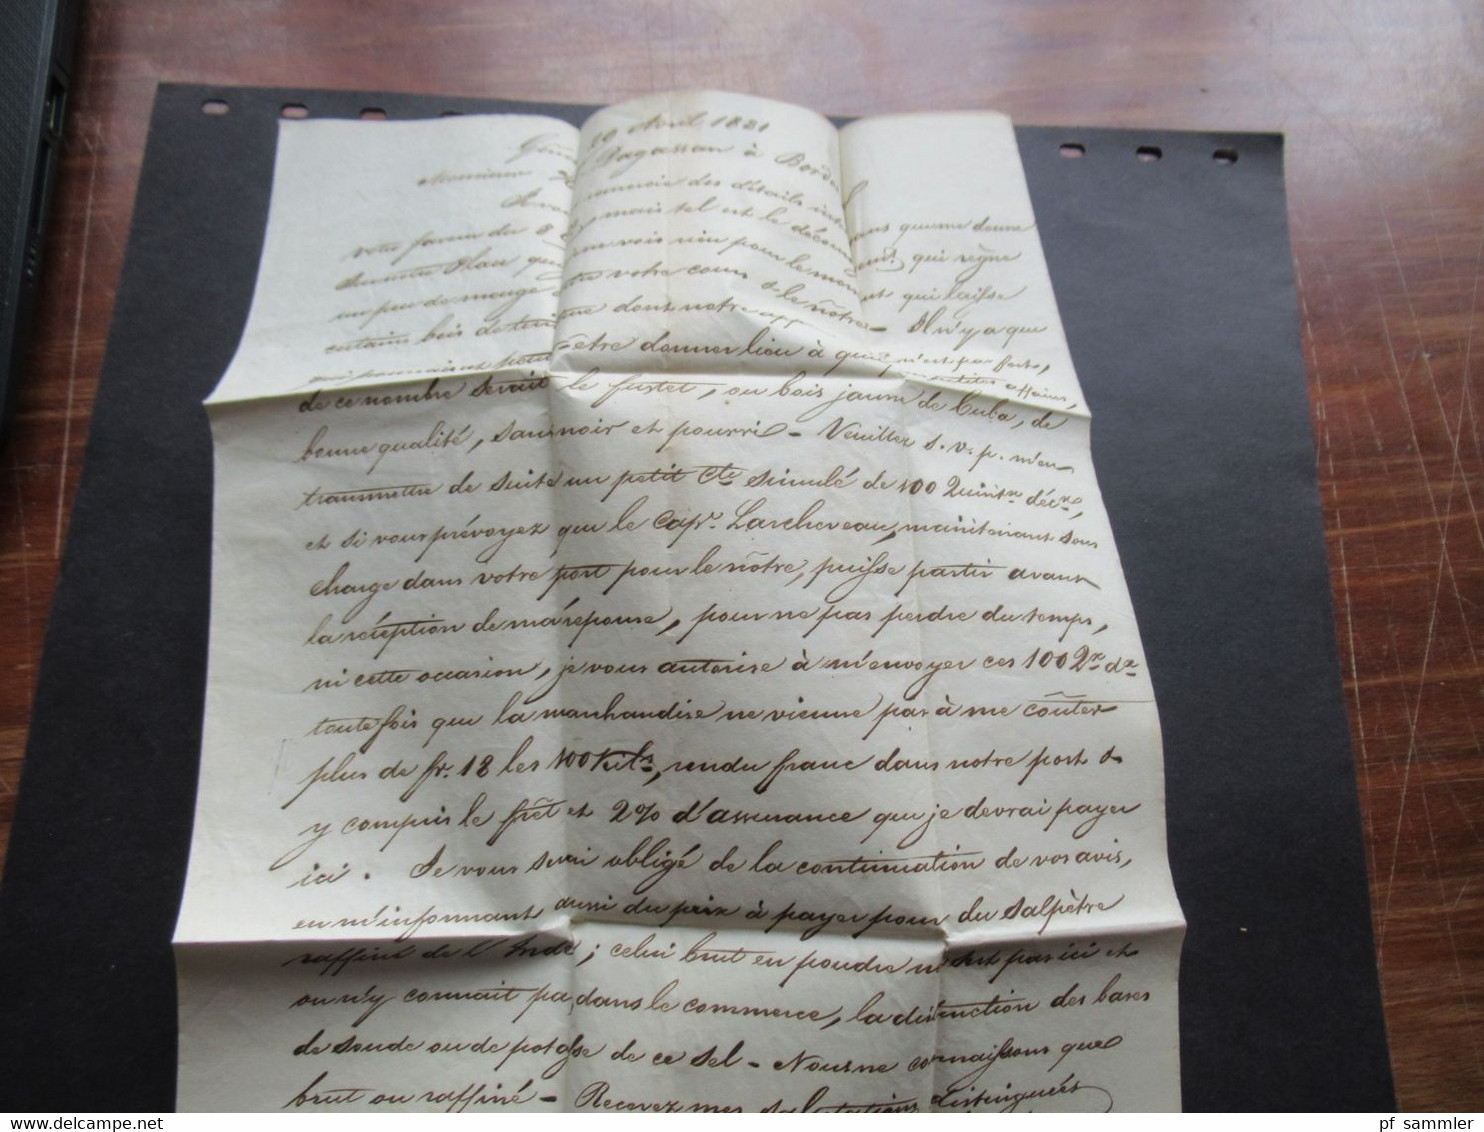 20 Avril 1821
Monsieur Pagassan à Bordeaux
votre faveur du 8 des détails
mais tel est le qui règne
un peu de marge entre votre cours & le nôtre - Il n'y a que
certains bois de teinture dont notre n'est pas forte,
qui pourraient peut-être donner lieu à affaires,
de ce nombre serait le fustet, ou bois jaune de Cuba, de
bonne qualité, sans noir et pourri - Veuillez s. v. p. m'en
transmettre de suite un petit Cte simulé de 100 Quintx décx,
et si vous prévoyez que le Cape Larcheveau, maintenant sous
charge dans votre port pour le nôtre, puisse partir avant
la réception de ma réponse, pour ne pas perdre du temps,
ni cette occasion, je vous autorise à m'envoyer ces 100 Qx dx
toutefois que la marchandise ne vienne pas à me coûter
plus de fr. 18 les 100 Kils, rendu franc dans notre port &
y compris le frêt et 2% d'assurance que je devrai payer
ici. Je vous serai obligé de la continuation de vos avis,
en m'informant aussi du prix à payer pour du salpêtre
raffiné de l'Inde; celui brut en poudre n'est pas ici et
on n'y connait pas dans le commerce, la distinction des bases
de soude ou de potasse de ce sel - Nous ne connaissons que
brut ou raffiné - Recevez mes salutations distinguées
pf sammler